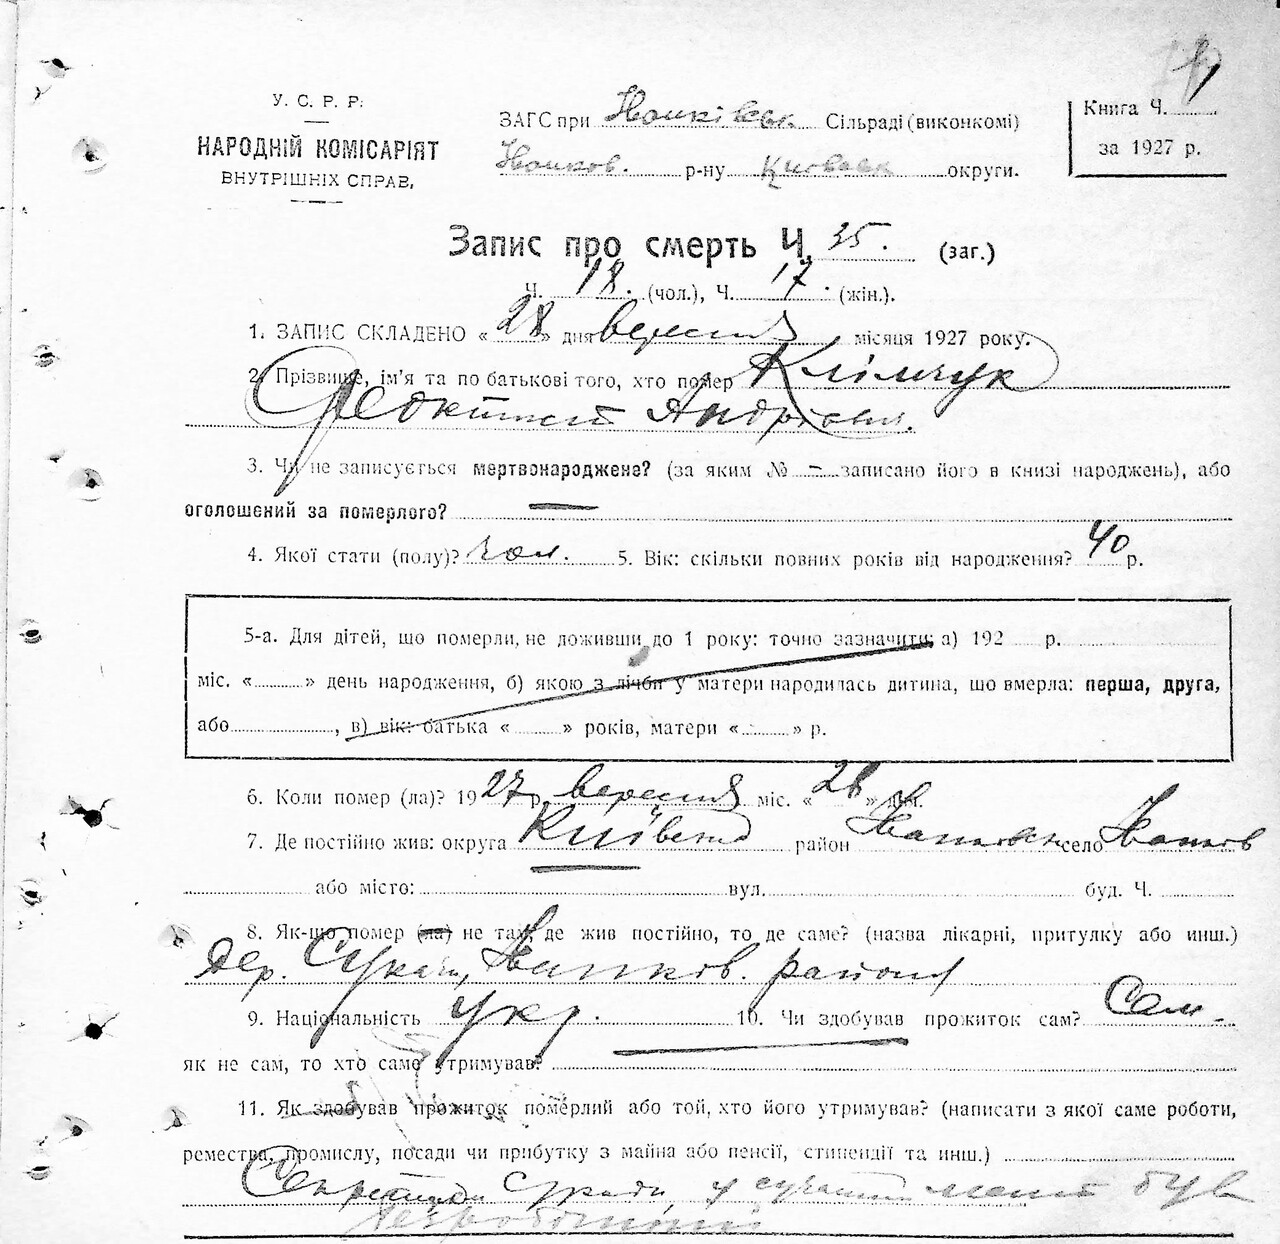 У. С. Р. Р.
НАРОДНІЙ КОМІСАРІЯТ
ВНУТРІШНІХ СПРАВ,
ЗАГС при Іванківськ Сільраді (виконкомі)
Іванков. р-ну Київськ округи.
Книга Ч. 1
за 1927 р.
Запис про смерть Ч. 35. (заг.)
Ч. 18. (чол.), Ч. 17. (жін.).
1. ЗАПИС СКЛАДЕНО «28» дня вересня місяця 1927 року.
2. Прізвище, ім'я та по батькові того, хто помер Клімчук
Феоктист Андрієвич.
3. Чи не записується мертвонароджене? (за яким № – записано його в книзі народжень), або
оголошений за померлого? —
4. Якої стати (полу)? чол. 5. Вік: скільки повних років від народження? 40 р.
5-а. Для дітей, що померли, не доживши до 1 року: точно зазначити: а) 192 р.
міс. « » день народження, б) якою з лічби у матери народилась дитина, що вмерла: перша, друга,
або , в) вік: батька « » років, матери « » р.
6. Коли помер (ла)? 1927 р. вересня міс. «28» дня.
7. Де постійно жив: округа Київська район Іванковськ село Іванков
або місто: вул. буд. Ч.
8. Як-що помер (ла) не там, де жив постійно, то де саме? (назва лікарні, притулку або инш.)
дер. Сукачи, Іванков. района
9. Національність Укр. 10. Чи здобував прожиток сам? Сам.
як не сам, то хто саме утримував?
11. Як здобував прожиток померлий або той, хто його утримував? (написати з якої саме роботи,
ремества, промислу, посади чи прибутку з майна або пенсії, стипендії та инш.)
у сучасний мент був
безроботный